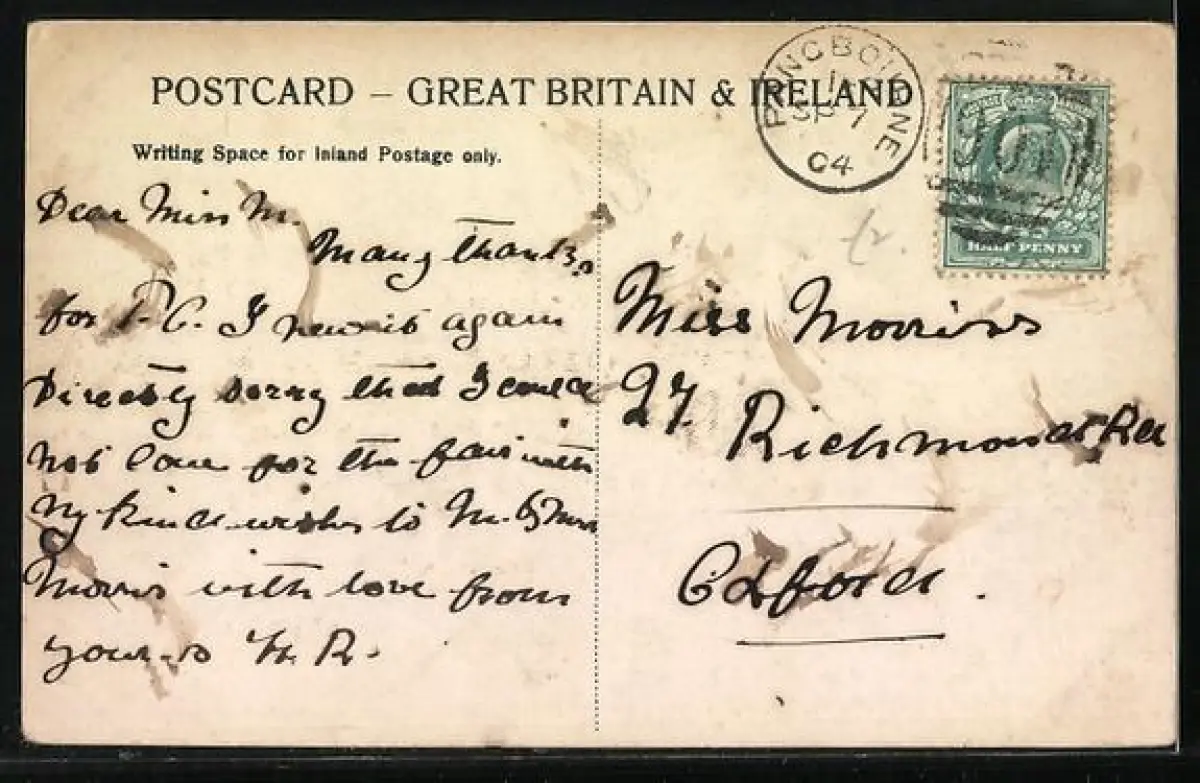 POSTCARD – GREAT BRITAIN & IRELAND
Writing Space for Inland Postage only.
PANGBOURNE
SP 7
04
HALF PENNY
Dear Miss M.
Many thanks
for P.C. I again
Directly sorry that I could
not come for the fair with
my kind wishes to M. & Mrs
Morris with love from
yours H. R.
Miss Morris
27. Richmond Rd
Oxford.